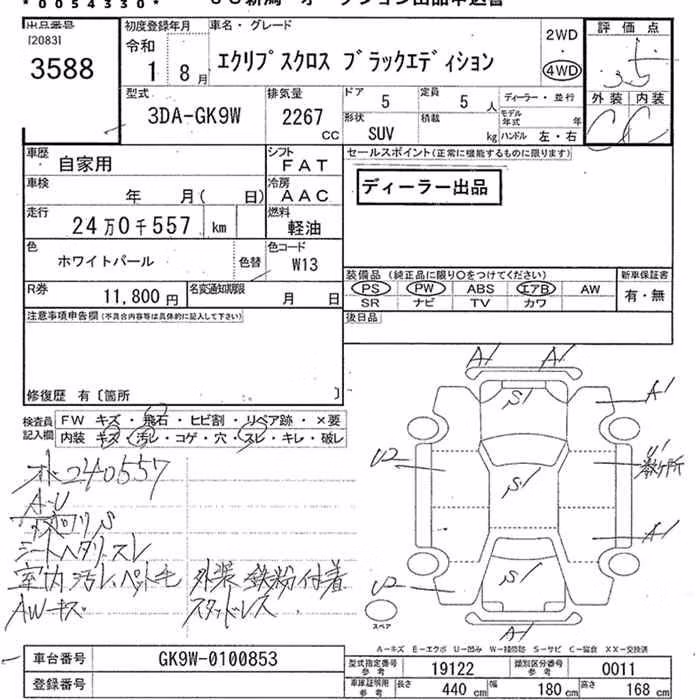 *0054330*
出品番号
[2083]
3588
初度登録年月
令和
1 8月
車名・グレード
エクリプスクロス ブラックエディション
2WD
・
4WD
評価点
3.5
外装 内装
C C
型式
3DA-GK9W
排気量
2267
CC
ドア 5
定員 5 人
形状
SUV
積載
kg
ディーラー・並行
モデル年式 年
ハンドル 左・右
車歴
自家用
シフト
FAT
車検
年 月( 日)
冷房
AAC
走行
24万0千557 km
燃料
軽油
色
ホワイトパール
色替
色コード
W13
R券
11,800 円
名変通知期限
月 日
セールスポイント(正常に機能するものに限ります)
ディーラー出品
装備品 (純正品に限り○をつけてください)
PS PW ABS エアB AW
SR ナビ TV カワ
新車保証書
有・無
後日品
注意事項申告欄(不具合内容等は具体的に記入して下さい)
修復歴 有〔箇所 〕
検査員記入欄
FW キズ・飛石・ヒビ割・リペア跡・×要
内装 キズ・汚レ・コゲ・穴・スレ・キレ・破レ
240557
A・U
シートヘタリ、スレ
室内汚レ、ペット毛 外装鉄粉付着
AWキズ スタッドレス
A1 A1
S1
A1
U2
U1
数ヶ所
S1
A1
S1
U2
A1
スペア
A-キズ E-エクボ U-凹み W-補修跡 S-サビ C-腐食 XX-交換済
車台番号
GK9W-0100853
登録番号
型式指定番号
参考
19122
類別区分番号
参考
0011
車庫証明用
参考
長さ 440 cm
幅 180 cm
高さ 168 cm